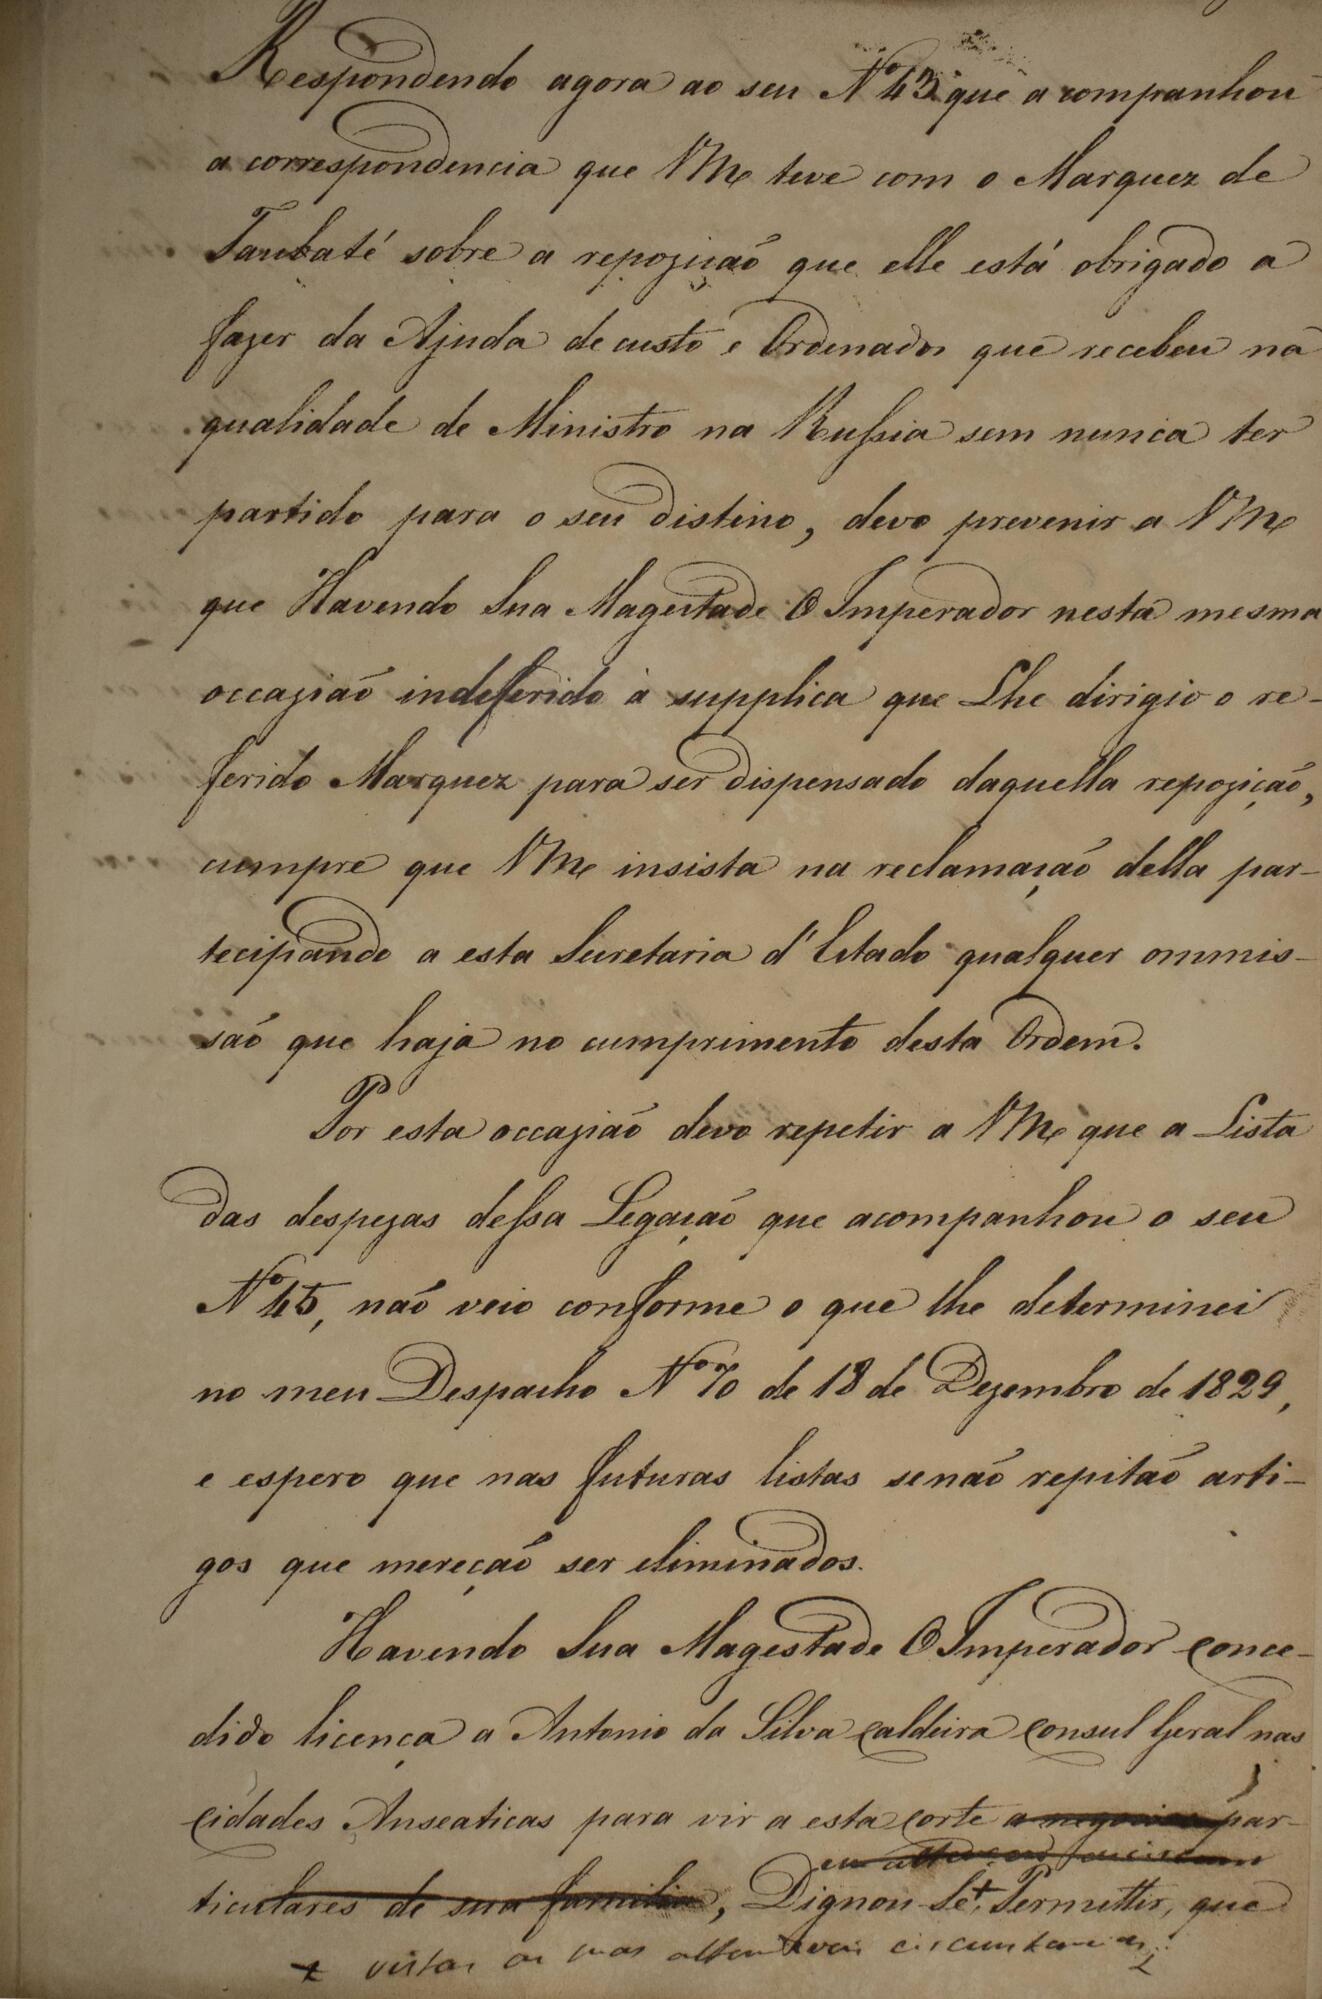 Respondendo agora ao seu Nº 43 que acompanhou
a correspondencia que VMe teve com o Marquez de
Taubaté sobre a repozição que elle está obrigado a
fazer da Ajuda de custo e Ordenados que recebeu na
qualidade de Ministro na Russia sem nunca ter
partido para o seu distino, devo prevenir a VMe
que Havendo Sua Magestade O Imperador nesta mesma
occazião indefferido à supplica que Lhe dirigio o re-
ferido Marquez para ser dispensado daquella repozição,
cumpre que VMe insista na reclamação della par-
tecipando a esta Secretaria d'Estado qualquer ommis-
são que haja no cumprimento desta Ordem.
Por esta occazião devo repetir a VMe que a Lista
das despezas dessa Legação que acompanhou o seu
Nº 45, não veio conforme o que lhe determinei
no meu Despacho Nº 70 de 18 de Dezembro de 1829,
e espero que nas futuras listas senão repitão arti-
gos que mereção ser eliminados.
Havendo Sua Magestade O Imperador conce-
dido licença a Antonio da Silva Caldeira Consul Geral nas
Cidades Anseaticas para vir a esta Corte a negocios par-
ticulares de sua familia, Dignou-Se + Permittir, que
+ vistas as suas attendiveis circunstancias